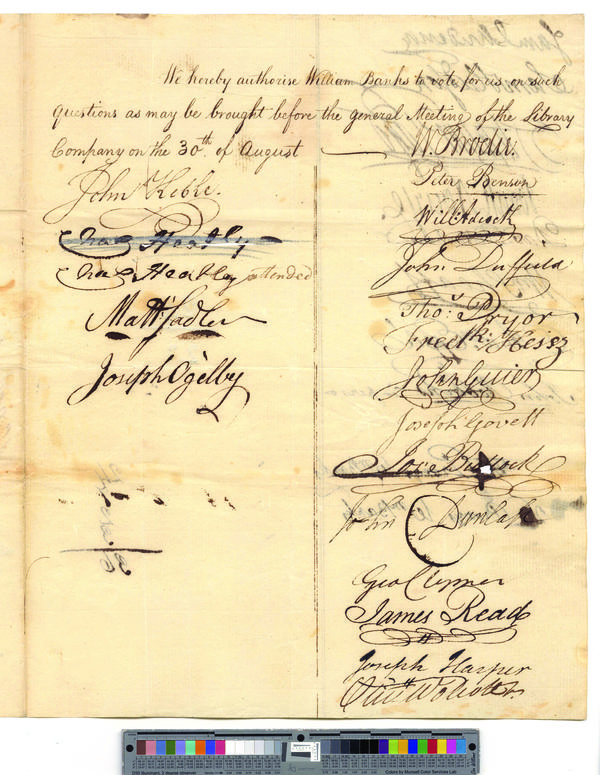 We hereby authorise William Banks to vote for us on such
questions as may be brought before the general Meeting of the Library
Company on the 30th. of August
John Keble.
Chas Heatly
Chas Heatly attended
Matt. Sadler
Joseph Ogelby
W. Brodie.
Peter Benson
Will Adcock
John Duffield
Thos. Pryor
Fredk. Hessz
John Guier
Joseph Govett
Jos. Bullock
John Dunlap
Geo Clymer
James Read
Joseph Harper